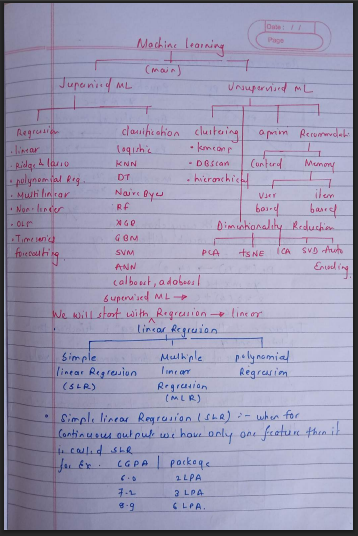 Date : / /
Page
Machine learning
(main)
Supervised ML
Unsupervised ML
Regression
classification
clustering
apriori
• linear
logistic
• kmeans
• Ridge & lasso
KNN
• DBscan
Content
Memory
• polynomial Reg
DT
• hierarchical
• Multilinear
Naive Bayes
user
item
• Non-linear
RF
based
based
Dimentionality Reduction
• Timeseries
GBM
PCA
tSNE
ICA
SVD
Auto
forcasting
SVM
Encoding
ANN
catboost, adaboost
supervised ML →
We will start with Regression → linear
linear Regression
Simple
Multiple
polynomial
linear Regression
linear
Regression
(SLR)
Regression
(MLR)
• Simple linear Regression (SLR) :- when for
continuous output we have only one feature then it
is called SLR
for Ex.
CGPA
package
6.0
2 LPA
7.2
3 LPA
8.9
6 LPA.